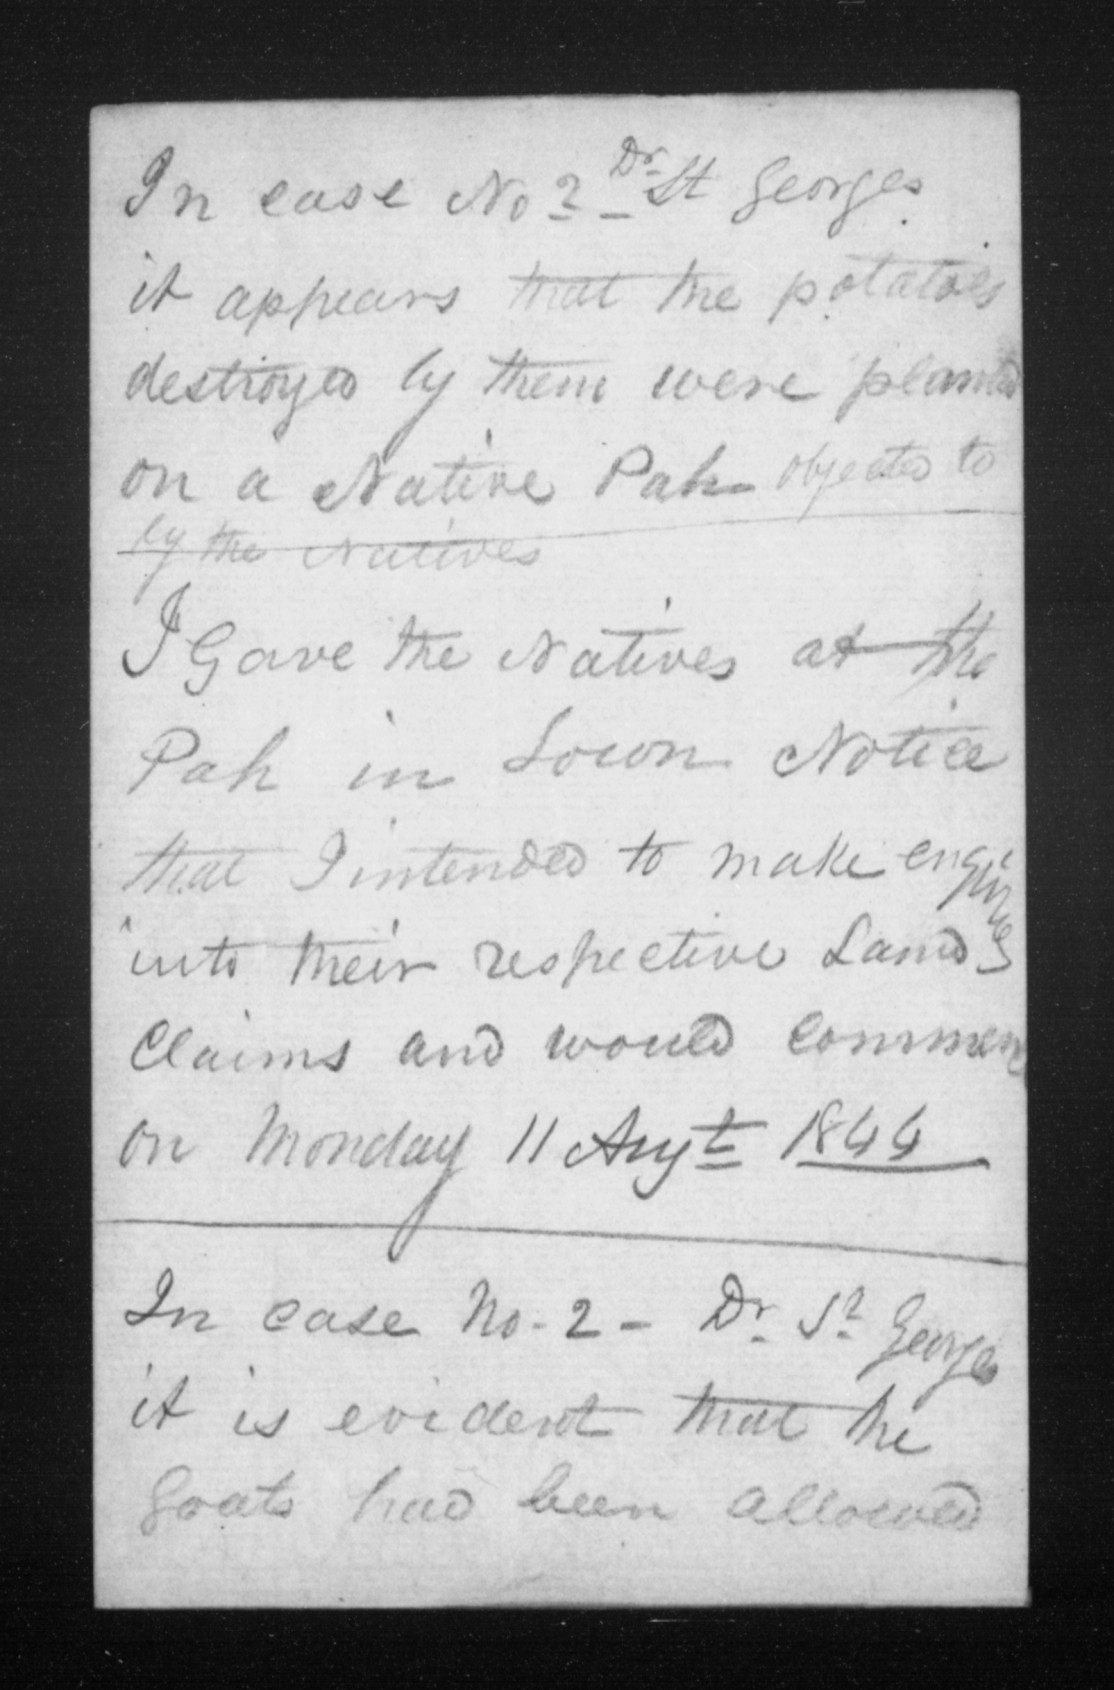 In case No 2 - Dr. St Georges
it appears that the potatoes
destroyed by them were planted
on a Native Pah objected to
by the Natives
I Gave the Natives at the
Pah in Town Notice
that I intended to make enquiries
into their respective Land
Claims and would commence
on Monday 11 Augt 1844
In case No. 2 - Dr. St Georges
it is evident that the
Goats had been allowed